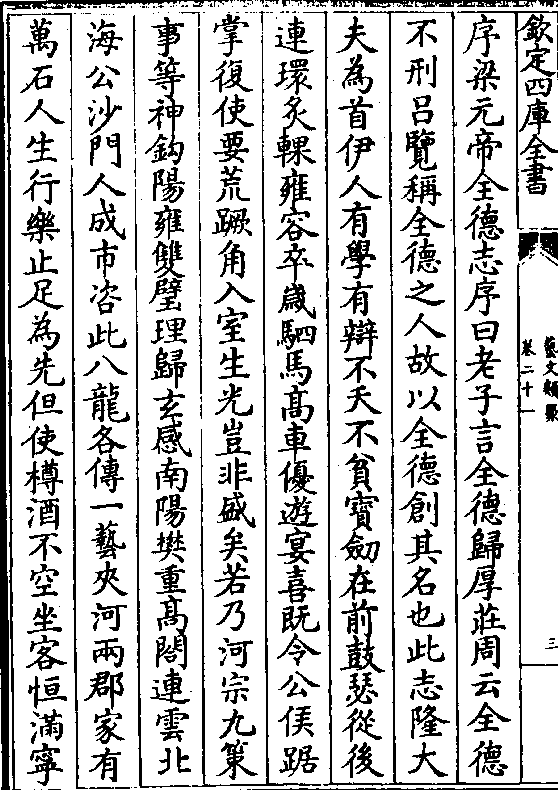 欽定四庫全書
藝文類聚
卷二十一
三
序梁元帝全德志序曰老子言全德歸厚莊周云全德
不刑吕覽稱全德之人故以全德創其名也此志隆大
夫為首伊人有學有辯不夭不貧寶劒在前鼓瑟從後
連環炙輠雍容卒歲駟馬髙車優遊宴喜既令公侯踞
掌復使要荒蹶角入室生光豈非盛矣若乃河宗九策
事等神鈎陽雍雙璧理歸玄感南陽樊重髙閣連雲北
海公沙門人成市咨此八龍各傳一藝夾河兩郡家有
萬石人生行樂止足為先但使樽酒不空坐客恒滿寧